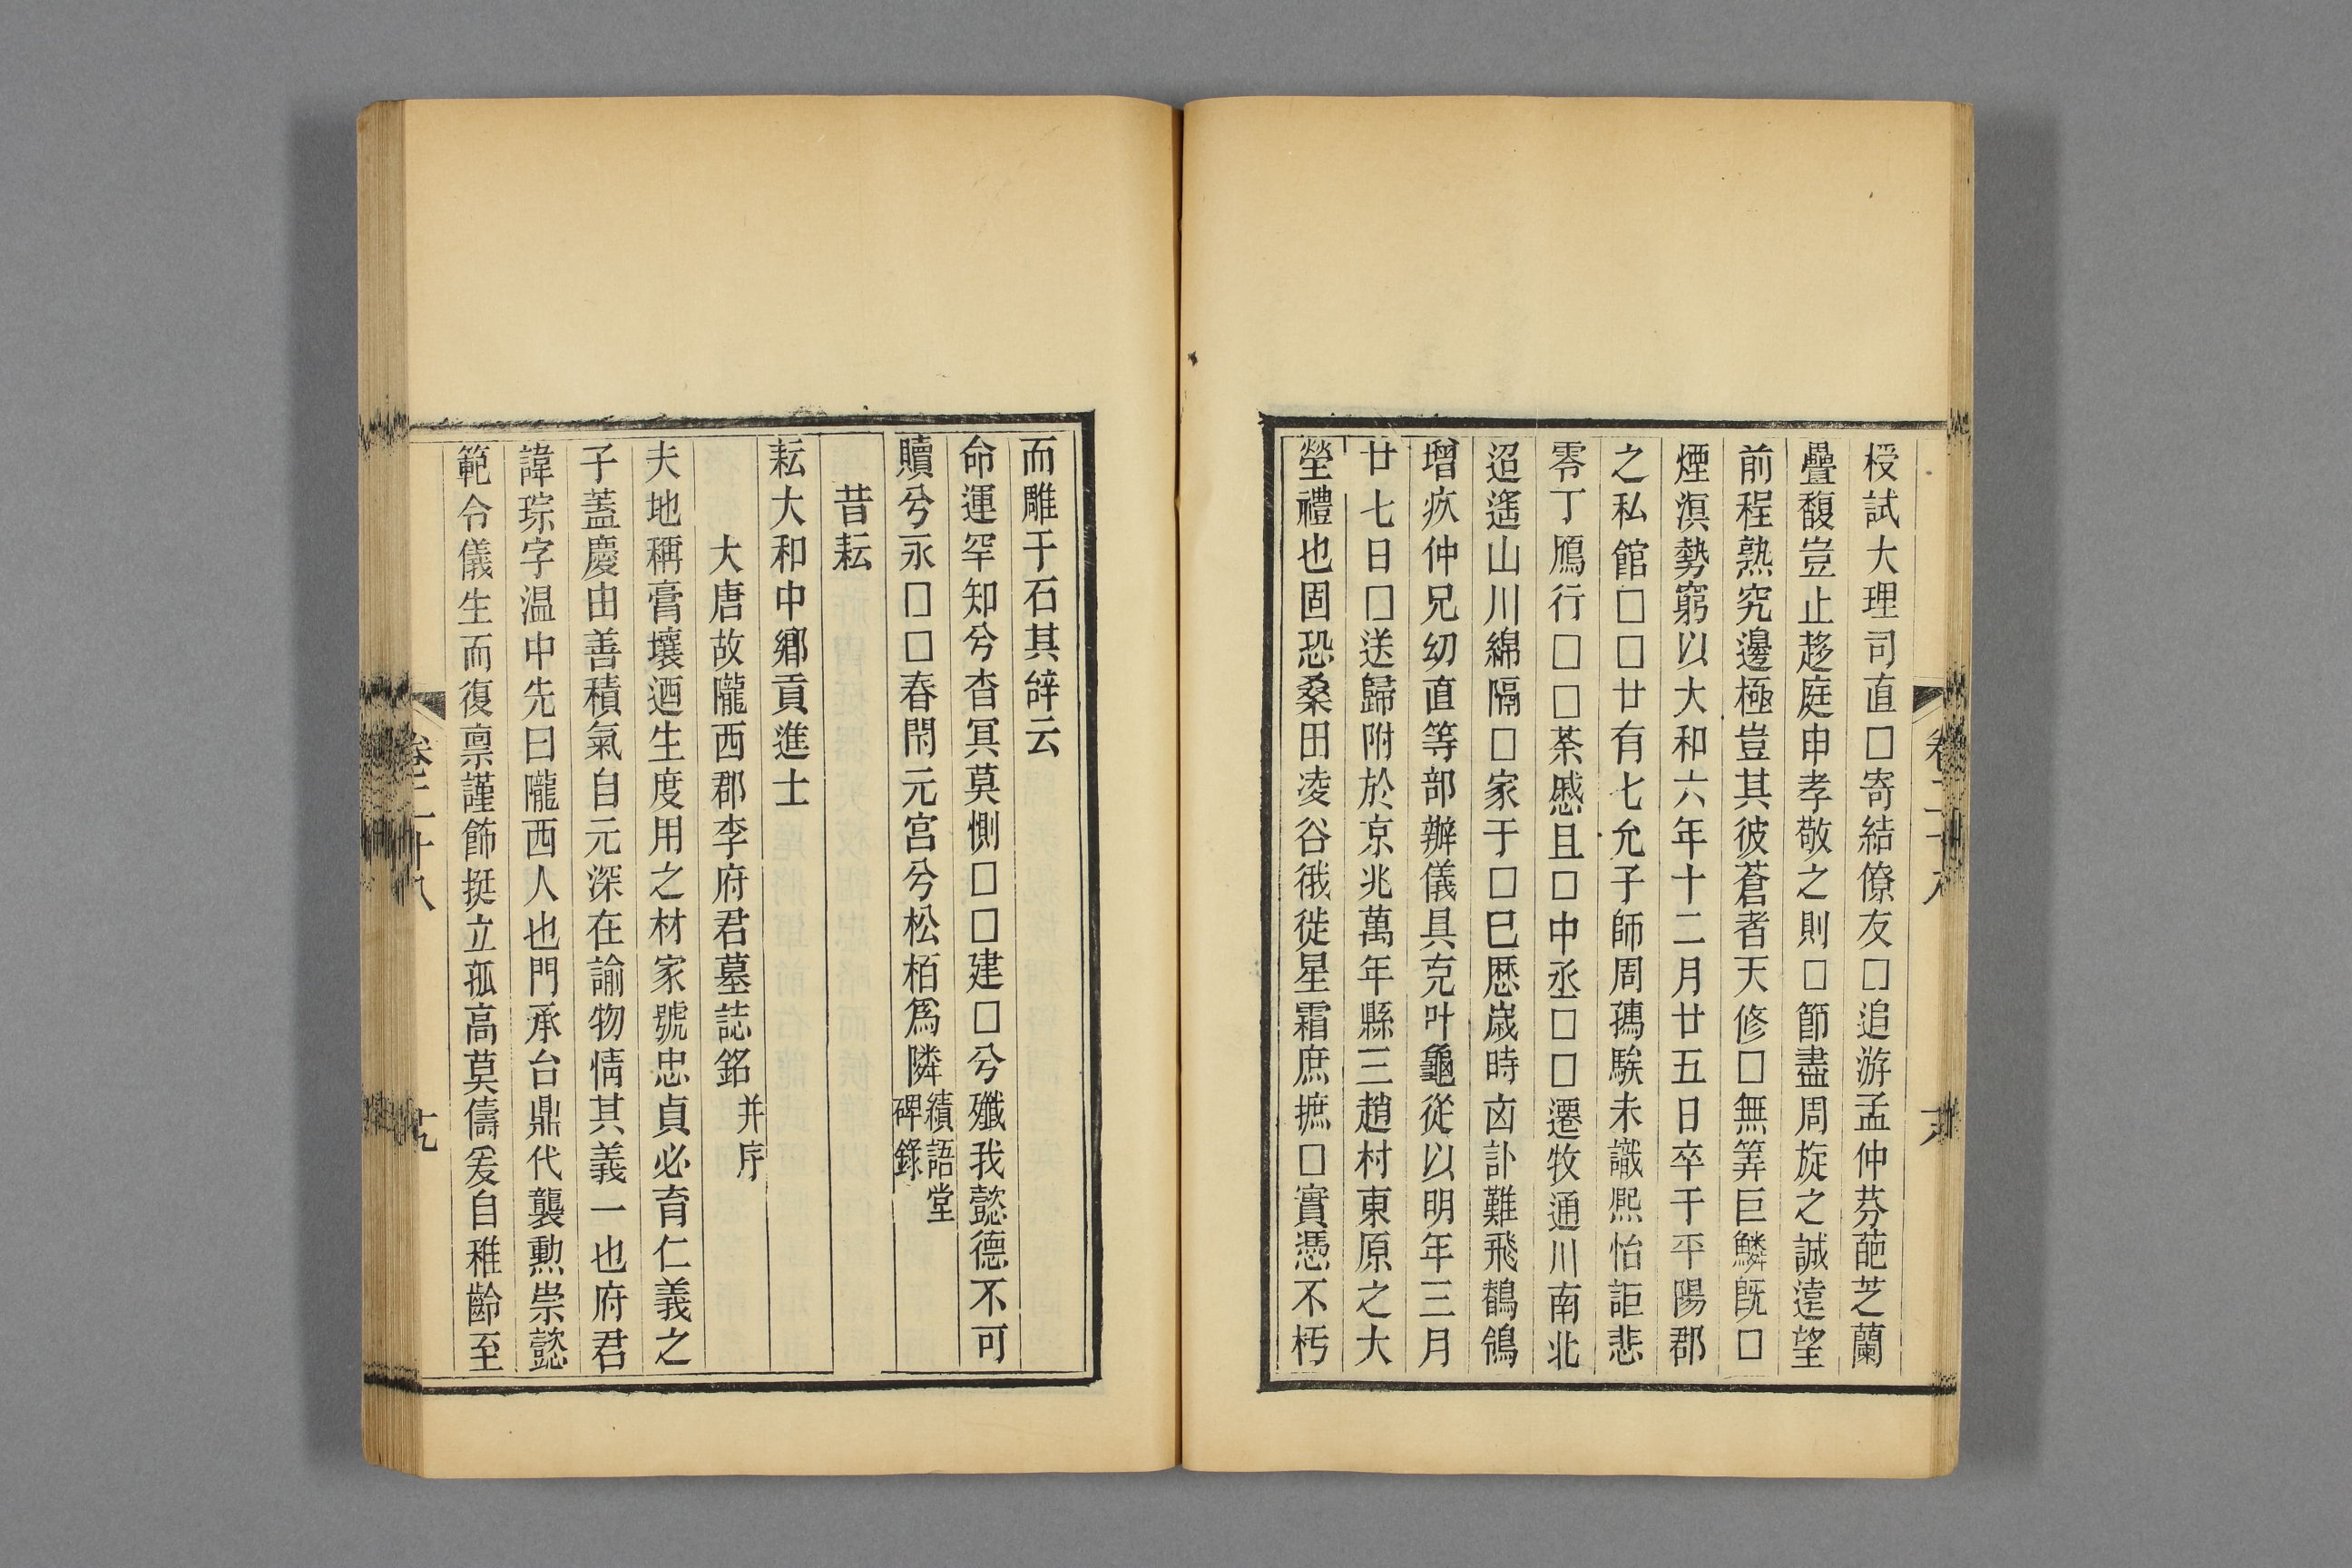 授試大理司直□寄結僚友□追游孟仲芬葩芝蘭
疊馥豈止趍庭申孝敬之則□節盡周旋之誠遠望
前程熟究邊極豈其彼蒼者天修□無筭巨鱗旣□
煙溟勢窮以大和六年十二月廿五日卒于平陽郡
之私館□□廿有七允子師周孺騃未識熈怡詎悲
零丁鴈行□□□茶慼且□中丞□□遷牧通川南北
迢遙山川綿隔□家于□巳歷歲時卤訃難飛鶺鴒
增疚仲兄幼直等部辦儀具克叶龜從以明年三月
廿七日□送歸附於京兆萬年縣三趙村東原之大
塋禮也固恐桑田凌谷徟徙星霜庶摭□實憑不朽
卷二十八
而雕于石其辝云
命運罕知兮杳冥莫惻□□建□兮殲我懿德不可
贖兮永□□春閇元宮兮松栢爲隣續語堂碑錄
昔耘
耘大和中鄉貢進士
大唐故隴西郡李府君墓誌銘并序
夫地稱膏壤迺生度用之材家號忠貞必育仁義之
子蓋慶由善積氣自元深在諭物情其義一也府君
諱琮字温中先曰隴西人也門承台鼎代襲勲崇懿
範令儀生而復禀謹飾挺立孤高莫儔爰自稚齡至
卷二十八